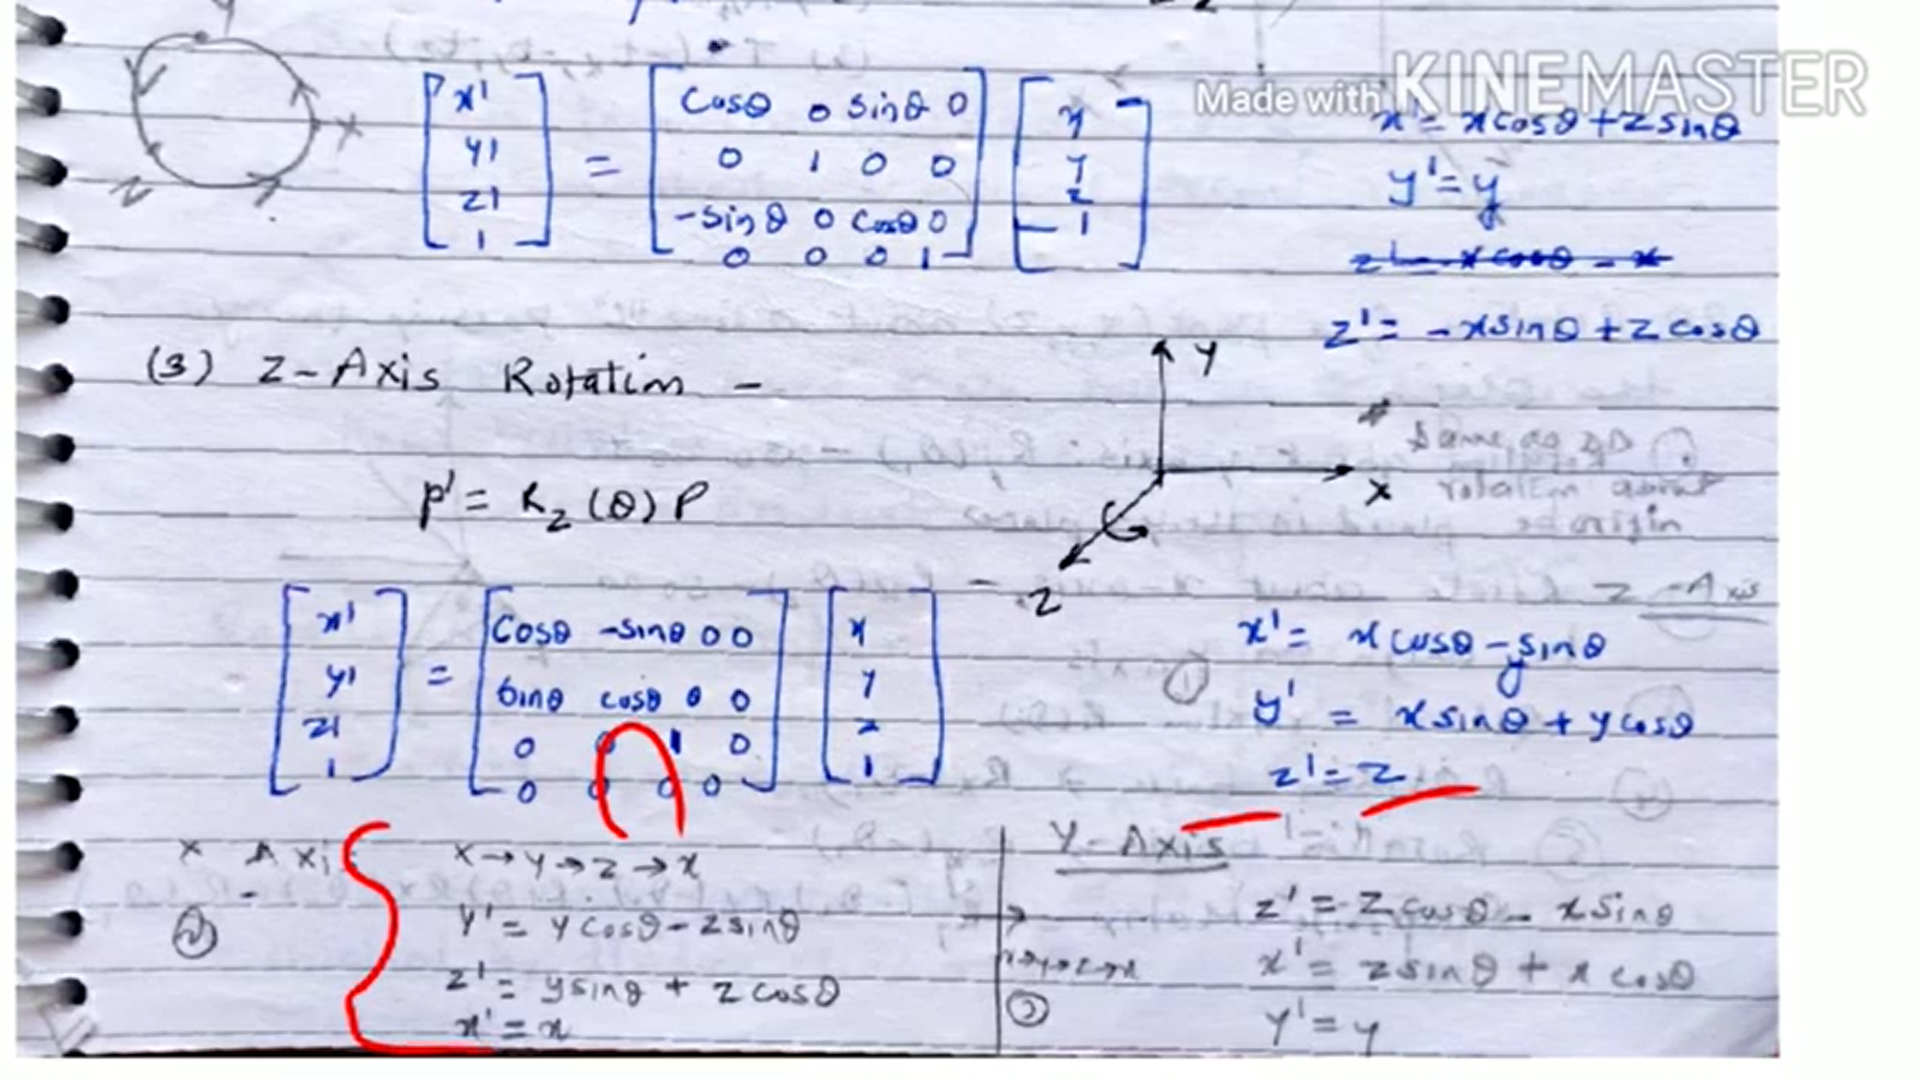 Made with KINEMASTER
Y
X
Z
[x' y' z' 1] = [Cosθ 0 sinθ 0
0 1 0 0
-sinθ 0 Cosθ 0
0 0 0 1] [x y z 1]
x' = xcosθ + zsinθ
y' = y
z' = -xsinθ + z cosθ
(3) Z-Axis Rotation -
Y
X
Z
Same as 2D
rotation about
origin
P' = Rz (θ) P
Z-Axis
①
[x' y' z' 1] = [Cosθ -sinθ 0 0
sinθ cosθ 0 0
0 0 1 0
0 0 0 0] [x y z 1]
x' = x cosθ - ysinθ
y' = xsinθ + ycosθ
z' = z
X Axi
②
X→Y→Z→X
Y' = Ycosθ - zsinθ
z' = ysinθ + zcosθ
x' = x
Y-Axis
x→y→z→x
③
z' = zcosθ - xsinθ
x' = zsinθ + x cosθ
y' = y